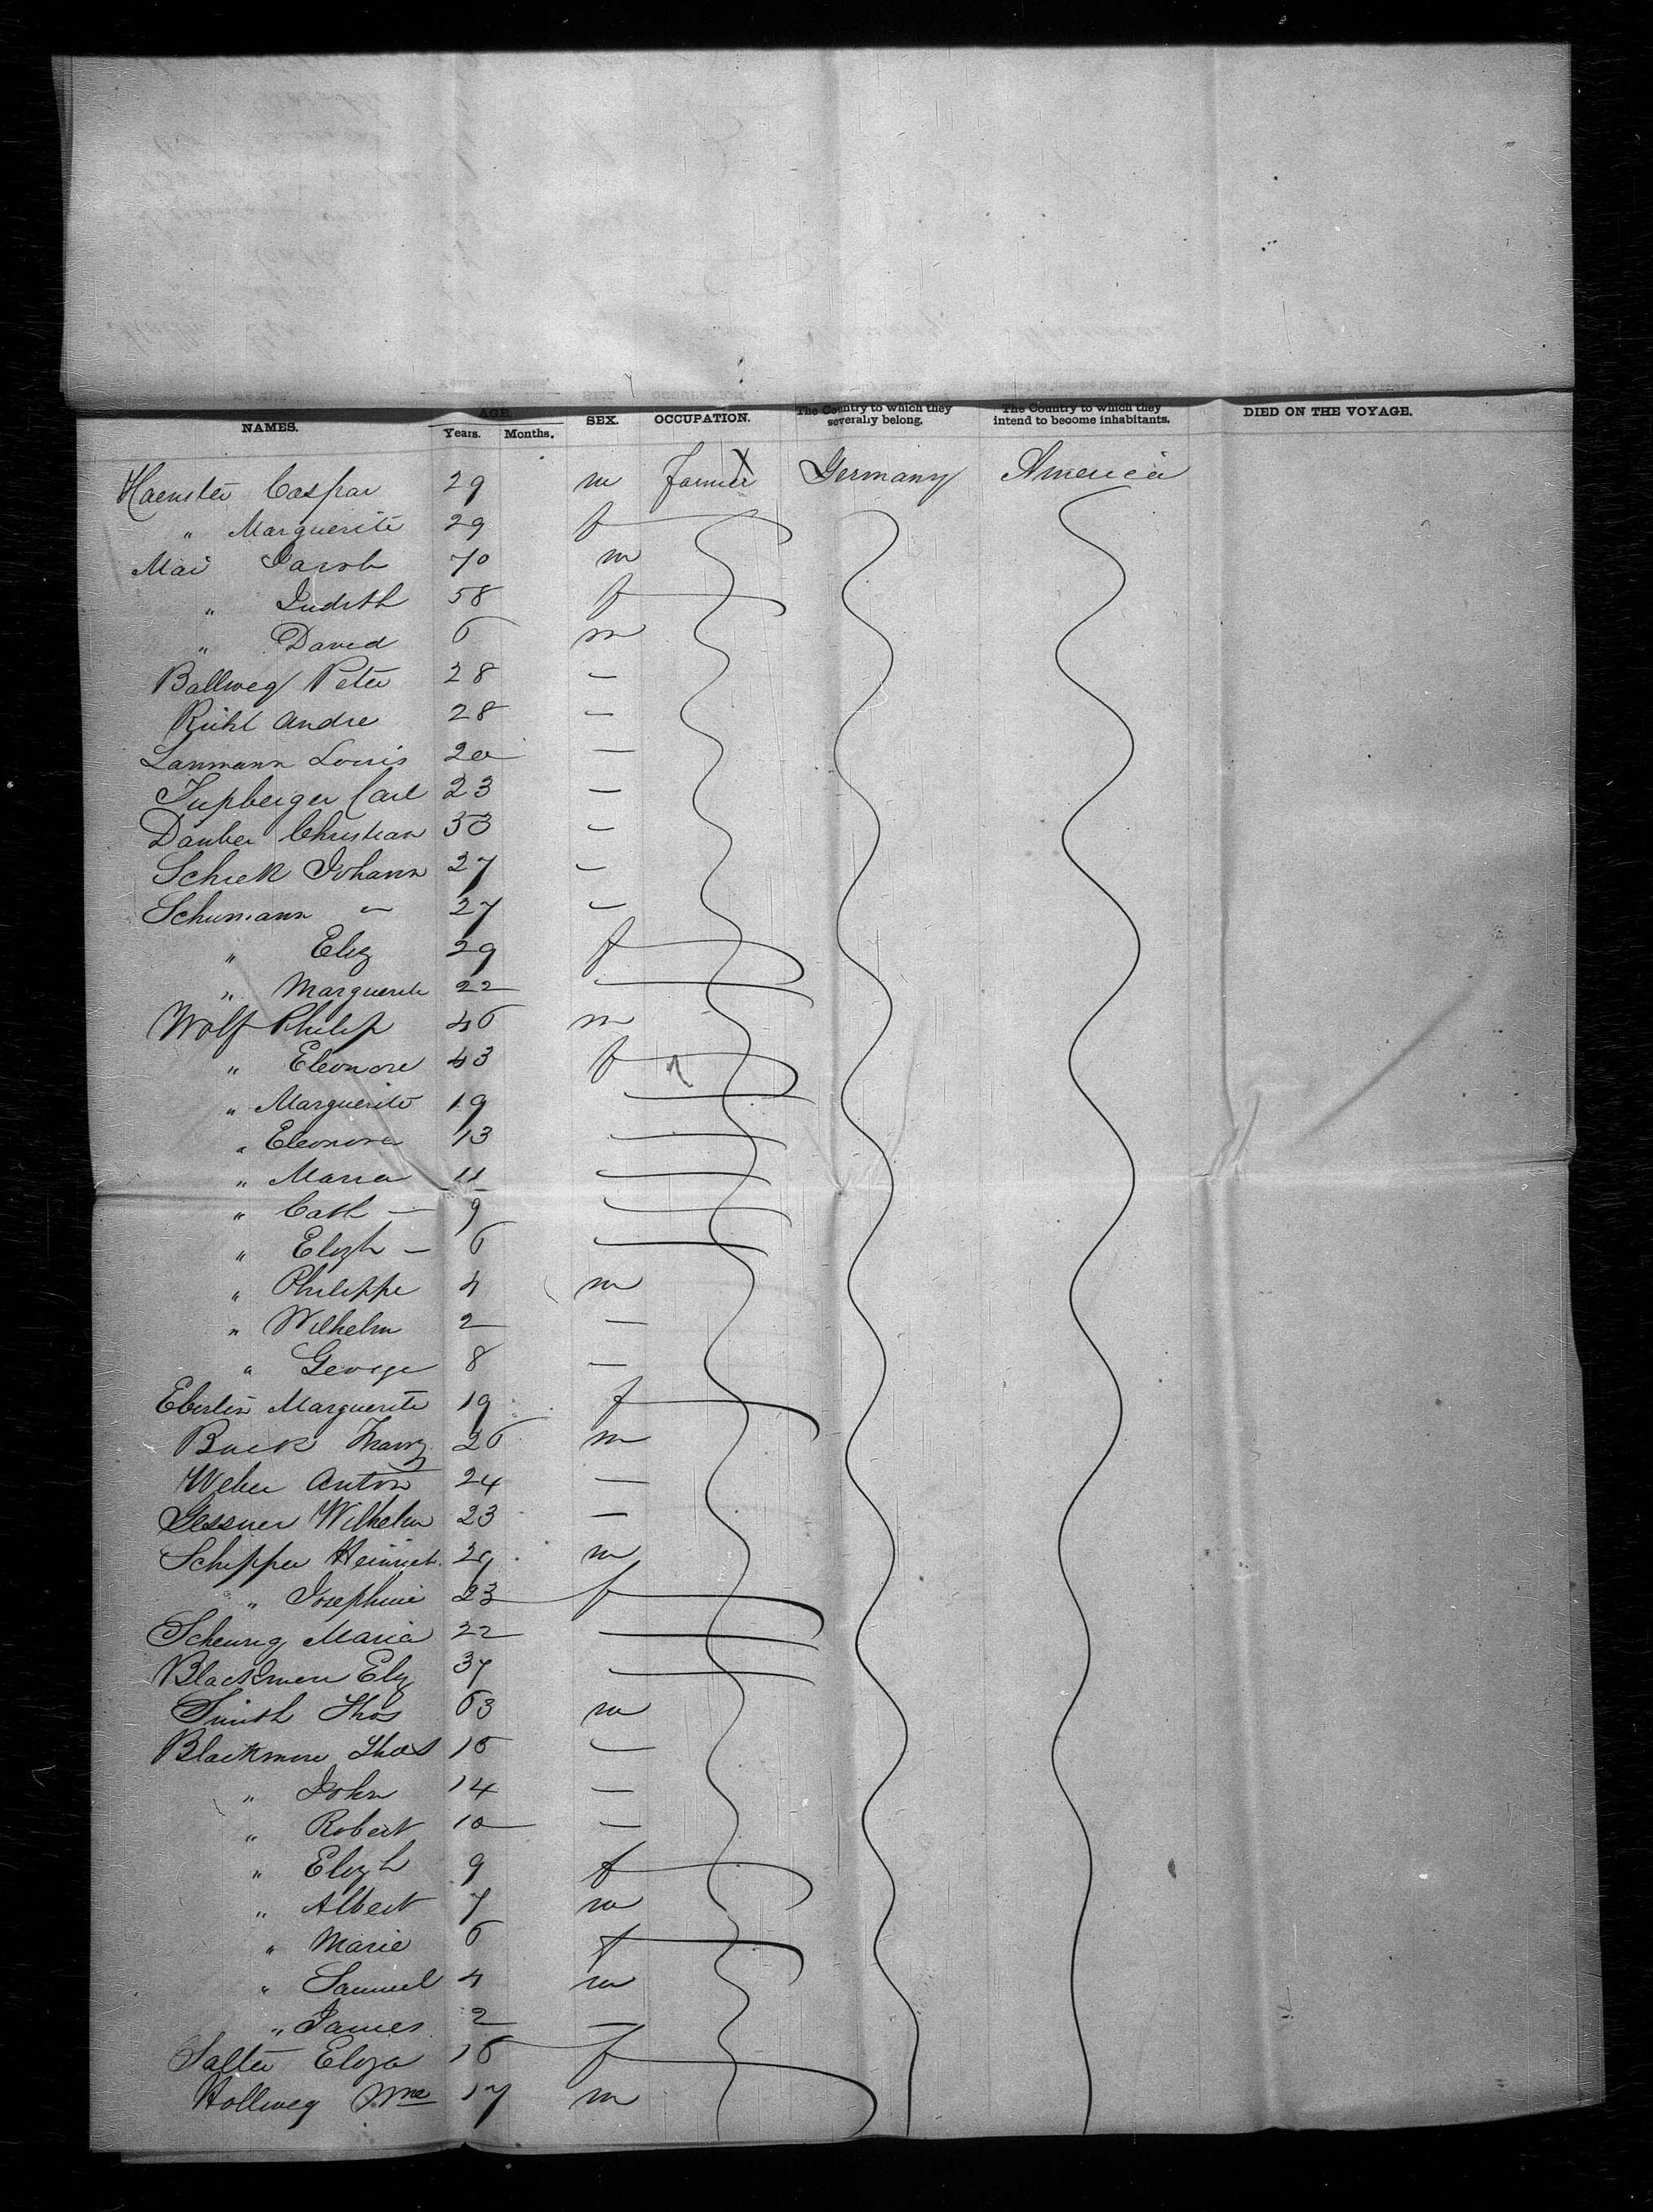 NAMES. AGE. Years. Months. SEX. OCCUPATION. The Country to which they severally belong. The Country to which they intend to become inhabitants. DIED ON THE VOYAGE.
Caspar 29 m farmer X Germany America
" Marguerite 29 f
Mai Jacob 70 m
" Judith 58 f
" David 6 m
Ballweg Peter 28 —
Rühl Andre 28 —
Lanmann Louis 20 —
Carl 23 —
Dauber Christian 33 —
Schick Johann 27 —
Schumann " 27 —
" Eliz 29 f
" Marguerite 22
Wolf Philip 46 m
" Eleonore 43 f
" Marguerite 19
" Eleonore 13
" Maria 11
" Cath — 9
" Elizh — 6
" Philippe 4 m
" Wilhelm 2 —
" George 8 —
Eberlin Marguerite 19 f
Buck Franz 26 m
Weber Anton 24 —
Gessner Wilhelm 23 —
Schipper Heinrich 29 m
" Josephine 23 f
Scheurig Maria 22
Blackmore Eliz 37
Smith Thos 63 m
Blackmore Thos 16 —
" John 14 —
" Robert 10 —
" Elizh 9 f
" Albert 7 m
" Marie 6 f
" Samuel 4 m
" James 2 —
Salter Eliza 18 f
Hollweg Wm 17 m